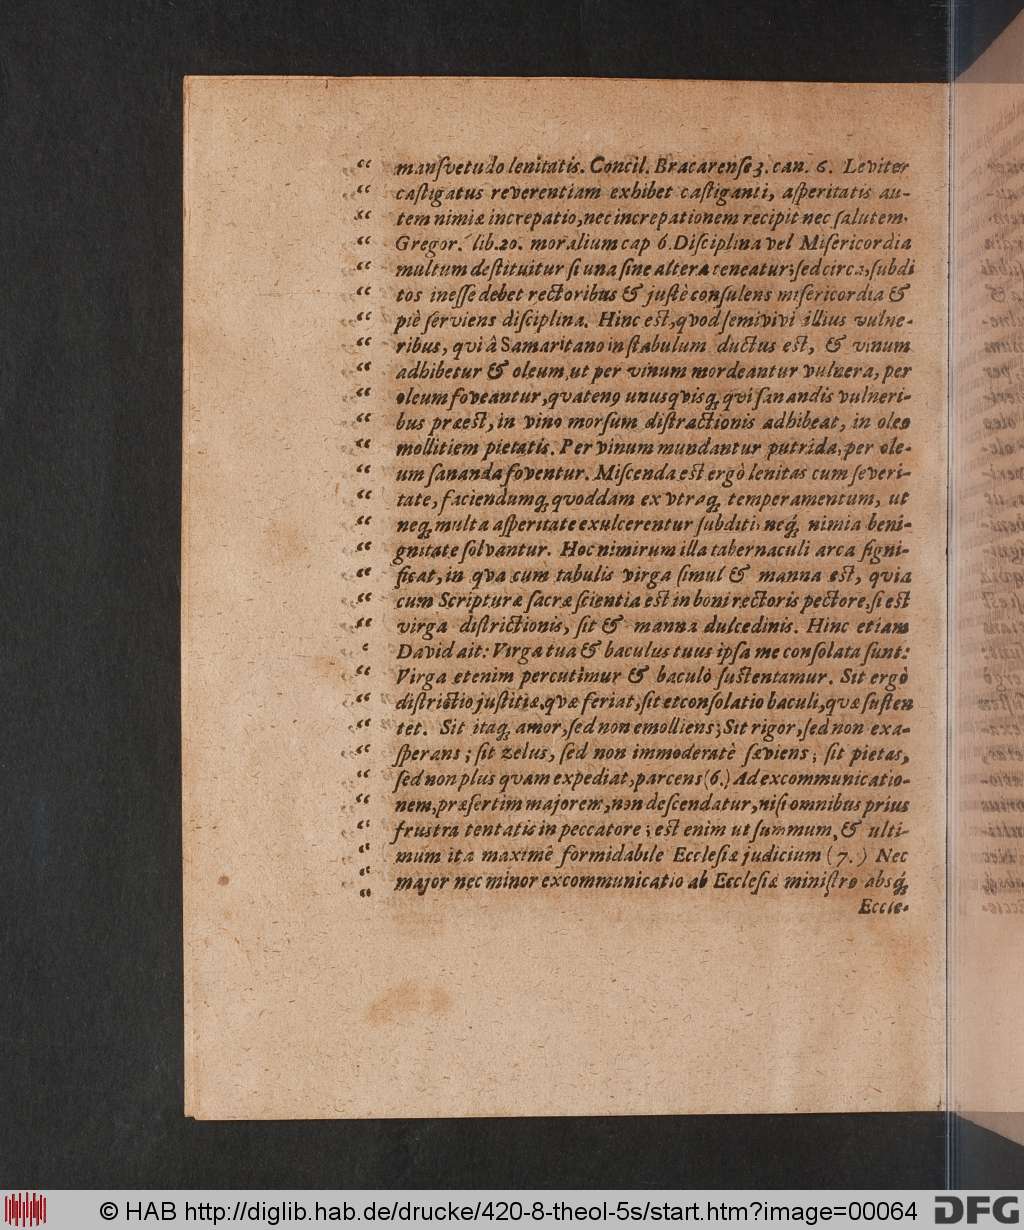 “ manſvetudo lenitatis. Concil. Bracarenſe 3. can. 6. Leviter
“ caſtigatus reverentiam exhibet caſtiganti, aſperitatis au-
“ tem nimiæ increpatio, nec increpationem recipit nec ſalutem.
“ Gregor. lib. 20. moralium cap 6. Diſciplina vel Miſericordia
“ multum deſtituitur ſi una ſine altera teneatur; ſed circa, ſubdi
“ tos ineſſe debet rectoribus & juſtè conſulens miſericordia &
“ piè ſerviens diſciplina. Hinc eſt, qvod ſemivivi illius vulne-
“ ribus, qvi â Samaritano in ſtabulum ductus eſt, & vinum
“ adhibetur & oleum, ut per vinum mordeantur vulnera, per
“ oleum foveantur, qvateno unusqvisq; qvi ſanandis vulneri-
“ bus præeſt, in vino morſum diſtractionis adhibeat, in oleo
“ mollitiem pietatis. Per vinum mundantur putrida, per ole-
“ um ſananda foventur. Miſcenda eſt ergò lenitas cum ſeveri-
“ tate, faciendumq; qvoddam ex vtraq; temperamentum, ut
“ neq; multa aſperitate exulcerentur ſubditi, neq; nimia beni-
“ gnitate ſolvantur. Hoc nimirum illa tabernaculi arca ſigni-
“ ficat, in qva cum tabulis virga ſimul & manna eſt, qvia
“ cum Scripturæ ſacræ ſcientia eſt in boni rectoris pectore, ſi eſt
“ virga diſtrictionis, ſit & manna dulcedinis. Hinc etiam
“ David ait: Virga tua & baculus tuus ipſa me conſolata ſunt:
“ Virga etenim percutimur & baculò ſuſtentamur. Sit ergò
“ diſtrictio juſtitiæ, qvæ feriat, ſit et conſolatio baculi, qvæ ſuſten
“ tet. Sit itaq; amor, ſed non emolliens; Sit rigor, ſed non exa-
“ ſperans; ſit zelus, ſed non immoderatè ſæviens; ſit pietas,
“ ſed non plus qvam expediat, parcens (6.) Ad excommunicatio-
“ nem, præſertim majorem, non deſcendatur, niſi omnibus prius
“ fruſtra tentatis in peccatore; eſt enim ut ſummum, & ulti-
“ mum ita maximê formidabile Eccleſiæ judicium (7.) Nec
“ major nec minor excommunicatio ab Eccleſiæ miniſtro absq;
Eccle-
© HAB http://diglib.hab.de/drucke/420-8-theol-5s/start.htm?image=00064
DFG